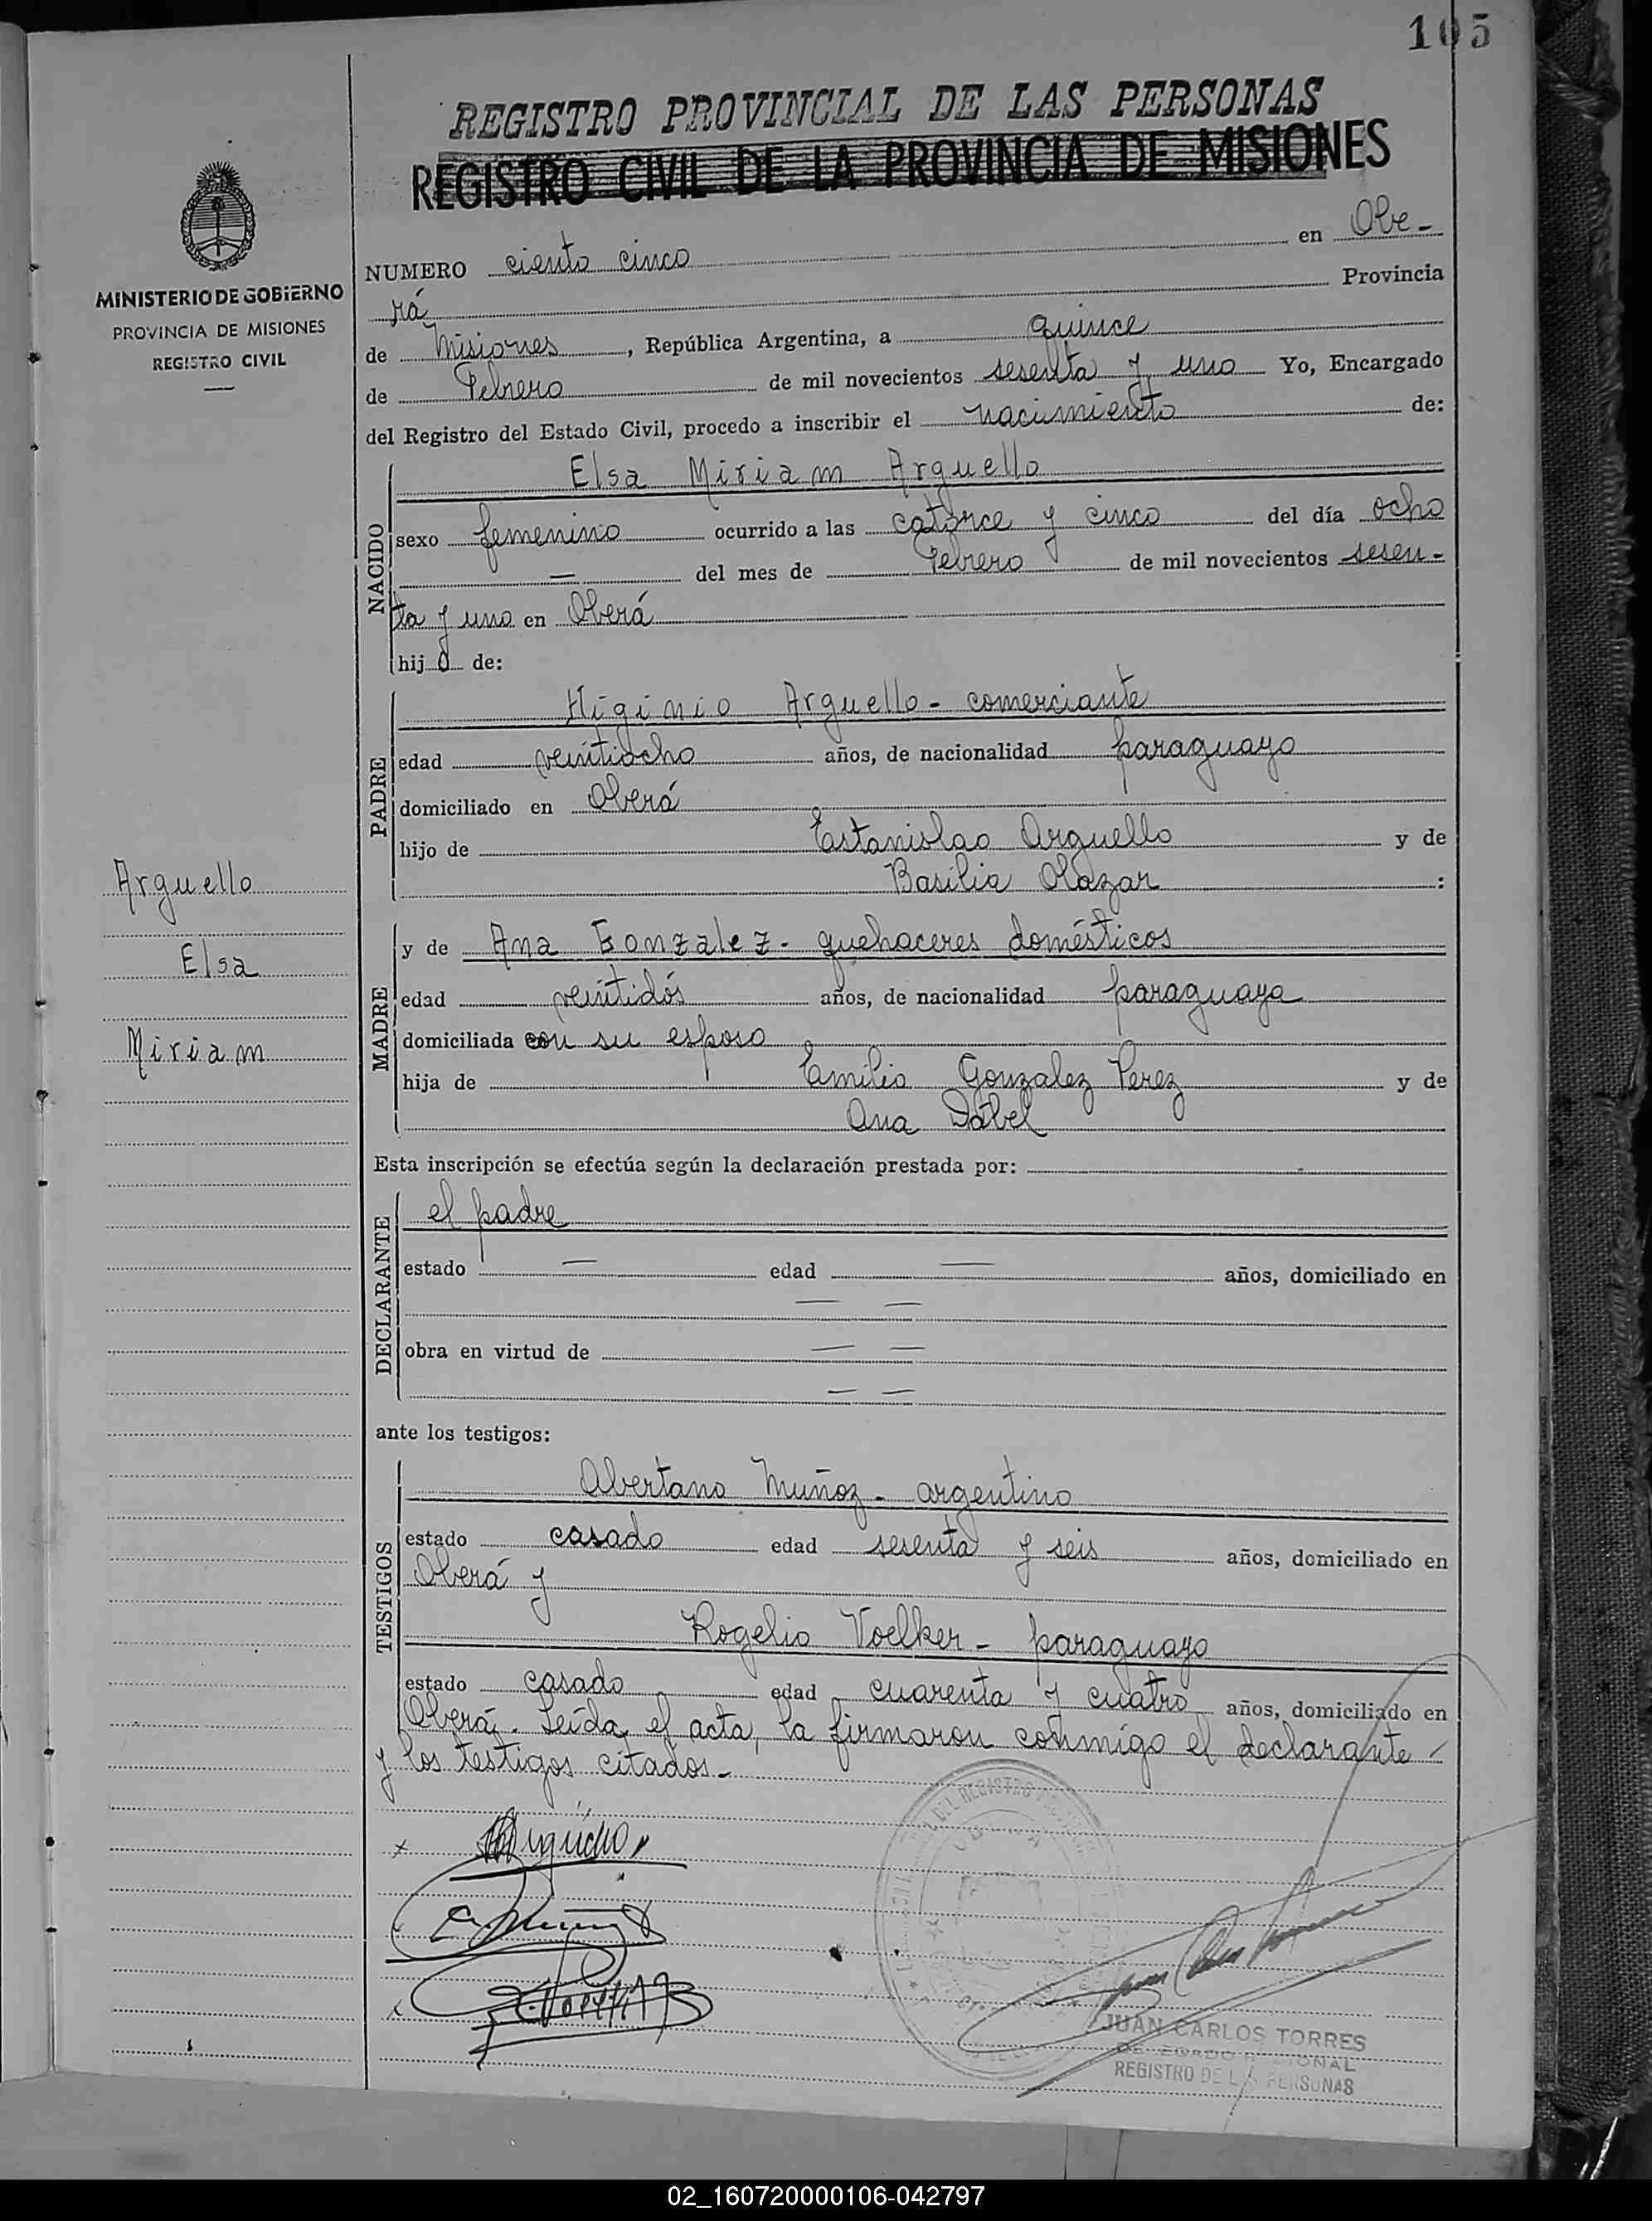 105
REGISTRO PROVINCIAL DE LAS PERSONAS
REGISTRO CIVIL DE LA PROVINCIA DE MISIONES
MINISTERIO DE GOBIERNO
PROVINCIA DE MISIONES
REGISTRO CIVIL
NUMERO ciento cinco en Obe-
rá Provincia
de Misiones, República Argentina, a quince
de Febrero de mil novecientos sesenta y uno Yo, Encargado
del Registro del Estado Civil, procedo a inscribir el nacimiento de:
NACIDO
Elsa Miriam Arguello
sexo femenino ocurrido a las catorce y cinco del día ocho
— del mes de Febrero de mil novecientos sesen-
ta y uno en Oberá
hija de:
PADRE
Higinio Arguello - comerciante
edad veintiocho años, de nacionalidad paraguayo
domiciliado en Oberá
hijo de Estanislao Arguello y de
Basilia Olazar :
Arguello
Elsa
Miriam
MADRE
y de Ana Gonzalez - quehaceres domésticos
edad veintidós años, de nacionalidad paraguaya
domiciliada con su esposo
hija de Emilio Gonzalez Perez y de
Ana Dabel
Esta inscripción se efectúa según la declaración prestada por:
DECLARANTE
el padre
estado — edad — años, domiciliado en
— —
obra en virtud de — —
— —
ante los testigos:
TESTIGOS
Abertano Muñoz - argentino
estado casado edad sesenta y seis años, domiciliado en
Oberá y
Rogelio Voelker - paraguayo
estado casado edad cuarenta y cuatro años, domiciliado en
Oberá. Leída el acta, la firmaron conmigo el declarante
y los testigos citados.-
JUAN CARLOS TORRES
REGISTRO DE LAS PERSONAS
02_160720000106-042797